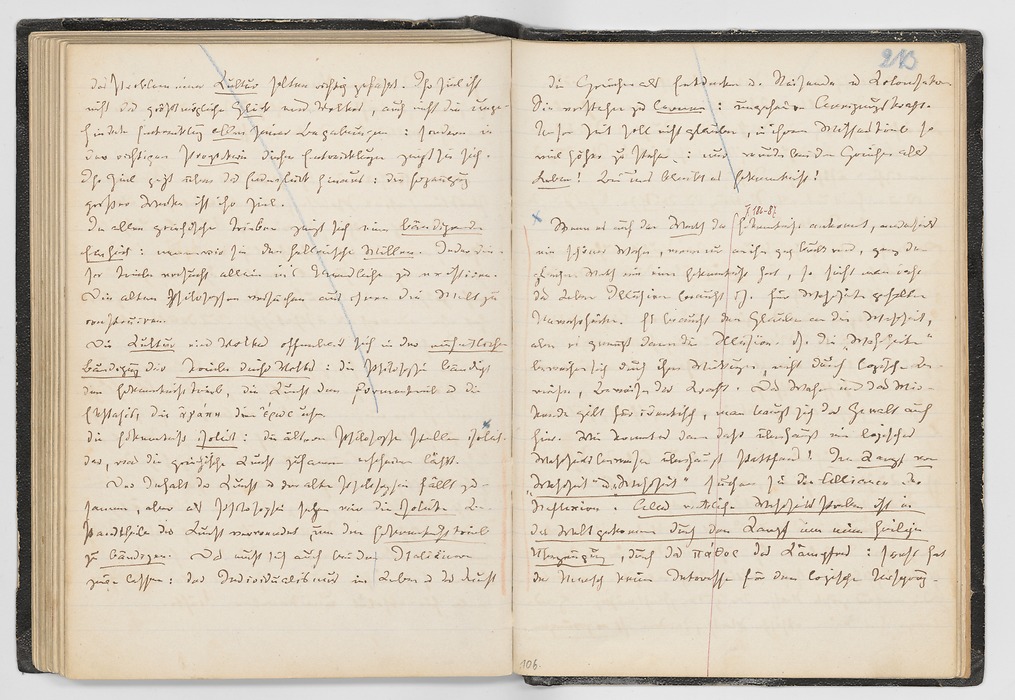 das Problem einer Cultur selten richtig gefaßt. Ihr Ziel ist
nicht das größtmögliche Glück eines Volkes, auch nicht die unge-
hinderte Entwicklung aller seiner Begabungen: sondern in
der richtigen Proportion dieser Entwicklungen zeigt sie sich.
Ihr Ziel zeigt über das Erdenglück hinaus: die Erzeugung
großer Werke ist ihr Ziel.
In allen griechischen Trieben zeigt sich eine bändigende
Einheit: nennen wir sie den hellenischen Willen. Jeder die-
ser Triebe versucht allein in's Unendliche zu existiren.
Die alten Philosophen versuchen aus ihnen die Welt zu
construiren.
Die Cultur eines Volkes offenbart sich in der einheitlichen
Bändigung der Triebe dieses Volkes: die Philosophie bändigt
den Erkenntnißtrieb, die Kunst den Formentrieb u die
Ekstasis, die ἀγάπη den ἔρως usw.
die Erkenntniß isolirt: die älteren Philosophen stellen isolirt
dar, was die griechische Kunst zusammen erscheinen läßt.
Der Inhalt der Kunst u der alten Philosophie fällt zu-
sammen, aber als Philosophie sehen wir die isolirten Be-
standtheile der Kunst verwendet um den Erkenntnißtrieb
zu bändigen. Das muß sich auch bei den Italiänern
zeigen lassen: der Individualismus im Leben u der Kunst
213
die Griechen als Entdecker u. Reisende u Kolonisatoren.
Sie verstehen zu lernen: ungeheure Aneignungskraft.
Unsre Zeit soll nicht glauben, in ihrem Wissenstrieb so
viel höher zu stehen: nur wurde bei den Griechen alles
Leben! Bei uns bleibt es Erkenntniß!
Wenn es auf den Werth der Erkenntniß ankommt, andrerseits
ein schöner Wahn, wenn nur an ihn geglaubt wird, ganz den
gleichen Werth wie eine Erkenntniß hat, so sieht man, daß
das Leben Illusionen braucht d.h. für Wahrheiten gehaltene
Unwahrheiten. Es braucht den Glauben an die Wahrheit,
aber es genügt dann die Illusion, d.h. die „Wahrheiten"
beweisen sich durch ihre Wirkungen, nicht durch logische Be-
weise, Beweise der Kraft. Das Wahre und das Wir-
kende gilt für identisch, man beugt sich der Gewalt auch
hier. Wie kommt es dann daß überhaupt ein logisches
Wahrheitsbeweisen überhaupt stattfand? Im Kampf von
„Wahrheit" u „Wahrheit" suchen sie die Allianz der
Reflexion. Alles wirkliche Wahrheitsstreben ist in
die Welt gekommen durch den Kampf um eine heilige
Überzeugung, durch das πάθος des Kämpfens: sonst hat
der Mensch kein Interesse für den logischen Ursprung.
106.